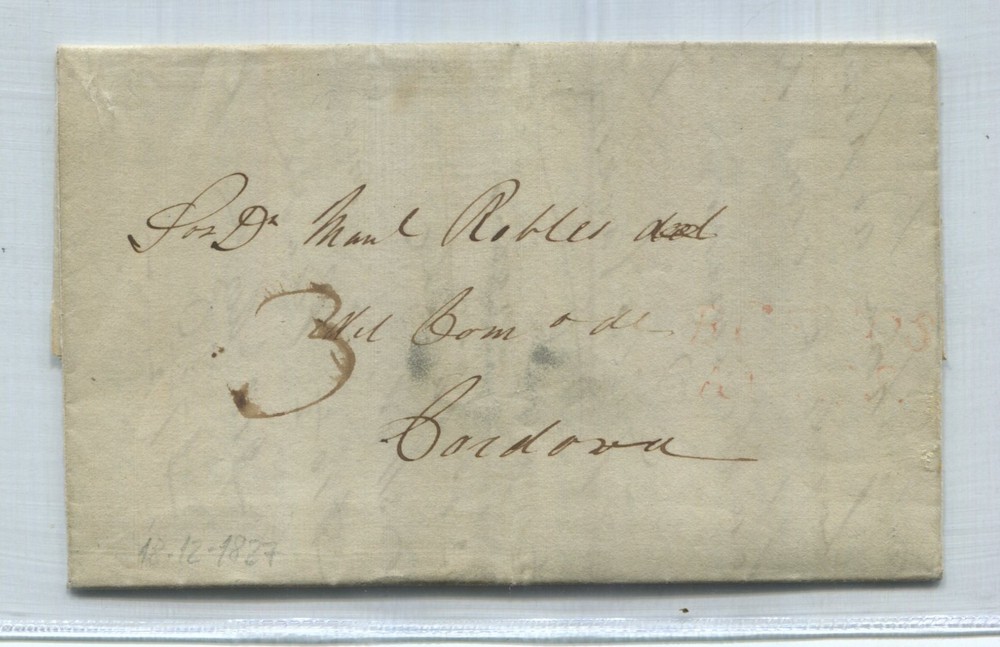 Sor Dn Manl Robles
3
del Com o de
Cordova
18-12-1827